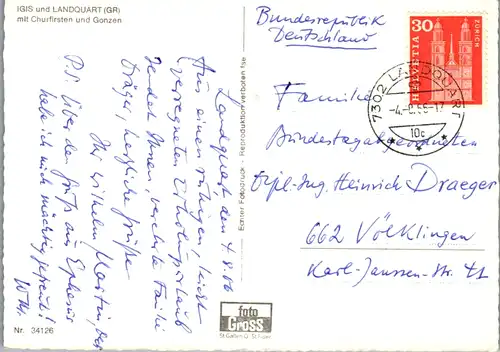 IGIS und LANDQUART (GR)
mit Churfirsten und Gonzen
Landquart den 4.8.66
Aus einem ruhigen, leicht
verregneten Erholungsurlaub
sendet Ihnen, verehrte Familie
Dräger, herzliche Grüße
Ihr Wilhelm
P.S. Über den Gruß aus Ephesus
habe ich mich mächtig gefreut!
Echter Fotodruck · Reproduktion verboten
foto
Gross
St. Gallen
Nr. 34126
Bundesrepublik
Deutschland
30
HELVETIA
ZÜRICH
7302 LANDQUART
10c
Familie
Bundestagsabgeordneten
Dipl.-Ing. Heinrich Draeger
662 Völklingen
Karl-Janssen-Str. 41